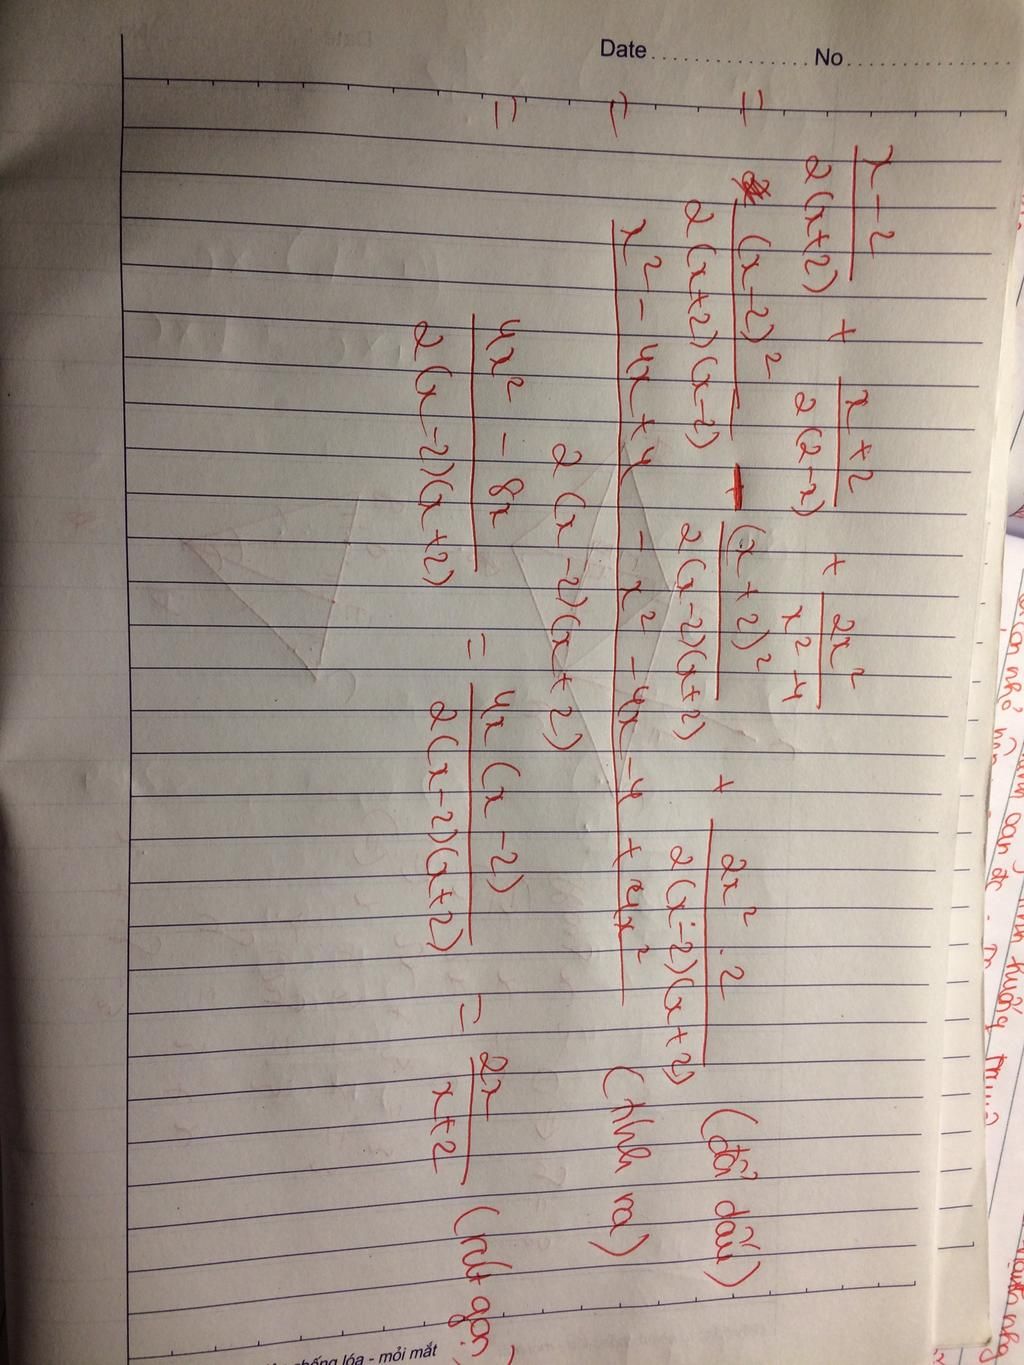 Date No
(x-2)/(2(x+2)) + (x+2)/(2(2-x)) + 2x²/(x²-4)
= (x-2)²/(2(x+2)(x-2)) - (x+2)²/(2(x-2)(x+2)) + 2x².2/(2(x-2)(x+2)) (đổi dấu)
= (x² - 4x + 4 - x² - 4x - 4 + 4x²)/(2(x-2)(x+2)) (tính ra)
= (4x² - 8x)/(2(x-2)(x+2)) = 4x(x-2)/(2(x-2)(x+2)) = 2x/(x+2) (rút gọn)
chống lóa - mỏi mắt